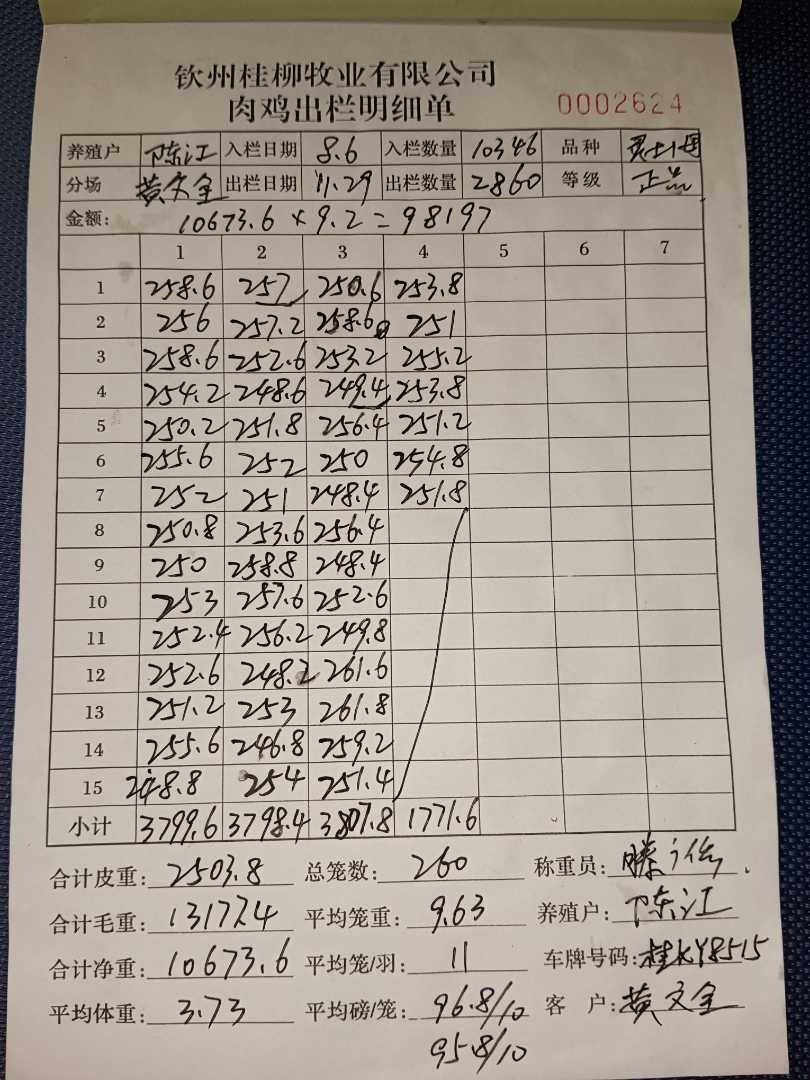 钦州桂柳牧业有限公司
肉鸡出栏明细单 0002624
养殖户 陈江 入栏日期 8.6 入栏数量 10346 品种
分场 黄文全 出栏日期 11.29 出栏数量 2860 等级 正品
金额: 10673.6 × 9.2 = 98197
1 2 3 4 5 6 7
1 258.6 257 250.6 253.8
2 256 257.2 258.6 251
3 258.6 252.6 253.2 255.2
4 254.2 248.6 249.4 253.8
5 250.2 251.8 256.4 251.2
6 255.6 252 250 254.8
7 252 251 248.4 251.8
8 250.8 253.6 256.4
9 250 258.8 248.4
10 253 257.6 252.6
11 252.4 256.2 249.8
12 252.6 248.2 261.6
13 251.2 253 261.8
14 255.6 246.8 259.2
15 248.8 254 251.4
小计 3799.6 3798.4 3807.8 1771.6
合计皮重: 2503.8 总笼数: 260 称重员:
合计毛重: 13177.4 平均笼重: 9.63 养殖户: 陈江
合计净重: 10673.6 平均笼/羽: 11 车牌号码: 桂KY8515
平均体重: 3.73 平均磅/笼: 96.8/10 客 户: 黄文全
95.8/10